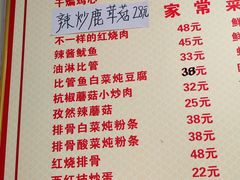 辣炒鹿茸菇28元
家常菜
不一样的红烧肉 48元
辣酱鱿鱼 45元
油淋比管 33元
比管鱼白菜炖豆腐 38元
杭椒蘑菇小炒肉 32元
孜然辣蘑菇 25元
排骨白菜炖粉条 38元
排骨酸菜炖粉条 45元
红烧排骨 48元
22元